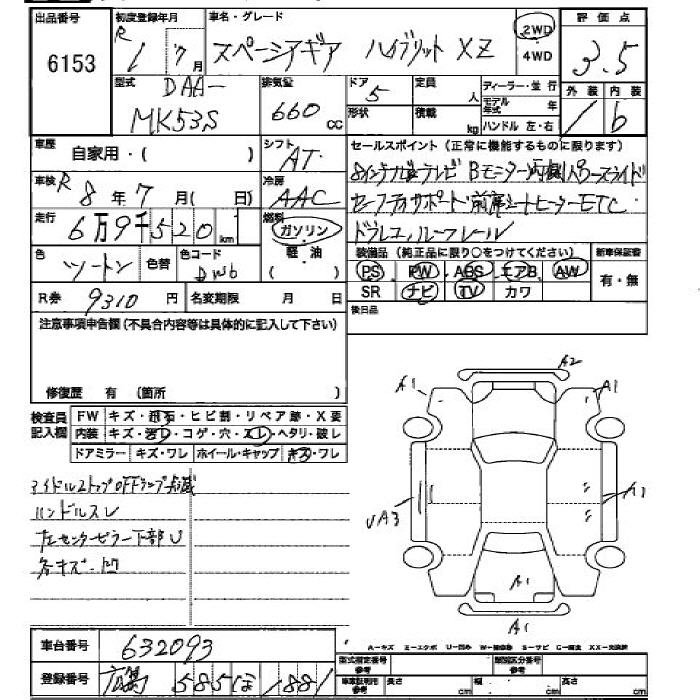 出品番号
6153
初度登録年月
R 1 7月
車名・グレード
スペーシアギア ハイブリットXZ
2WD
4WD
評価点
3.5
型式
DAA-
MK53S
排気量
660 cc
ドア
5
形状
定員
人
積載
kg
ディーラー・並行
モデル年式 年
ハンドル 左・右
外装
内装
1
b
車歴
自家用・( )
シフト
AT
セールスポイント(正常に機能するものに限ります)
8インチナビ テレビ Bモニター 両側パワースライド
セーフティサポート 前席シートヒーター ETC
ドラレコ ルーフレール
車検
R 8年7月( 日)
冷房
AAC
走行
6万9千520km
燃料
ガソリン
軽・油
( )
色
ツートン
色替
色コード
DW6
装備品(純正品に限り〇をつけてください)
PS PW ABS エアB AW
SR ナビ TV カワ
新車保証書
有・無
R券 9310円
名変期限 月 日
後日品
注意事項申告欄(不具合内容等は具体的に記入して下さい)
修復歴 有(箇所 )
検査員記入欄
FW キズ・飛石・ヒビ割・リペア跡・X要
内装 キズ・汚レ・コゲ・穴・スレ・ヘタリ・破レ
ドアミラー キズ・ワレ ホイール・キャップ キズ・ワレ
アイドルストップOFFランプ点滅
ハンドルスレ
左センターピラー下部U
各キズ・凹
A2
A1
A1
UA3
A1
A1
A1
車台番号
632093
登録番号
広島 585 ほ 1881
A-キズ E-エクボ U-凹み W-補修跡 S-サビ C-腐食 XX-交換済
型式指定番号
参考
類別区分番号
参考
車車証明用
参考
長さ cm
幅 cm
高さ cm